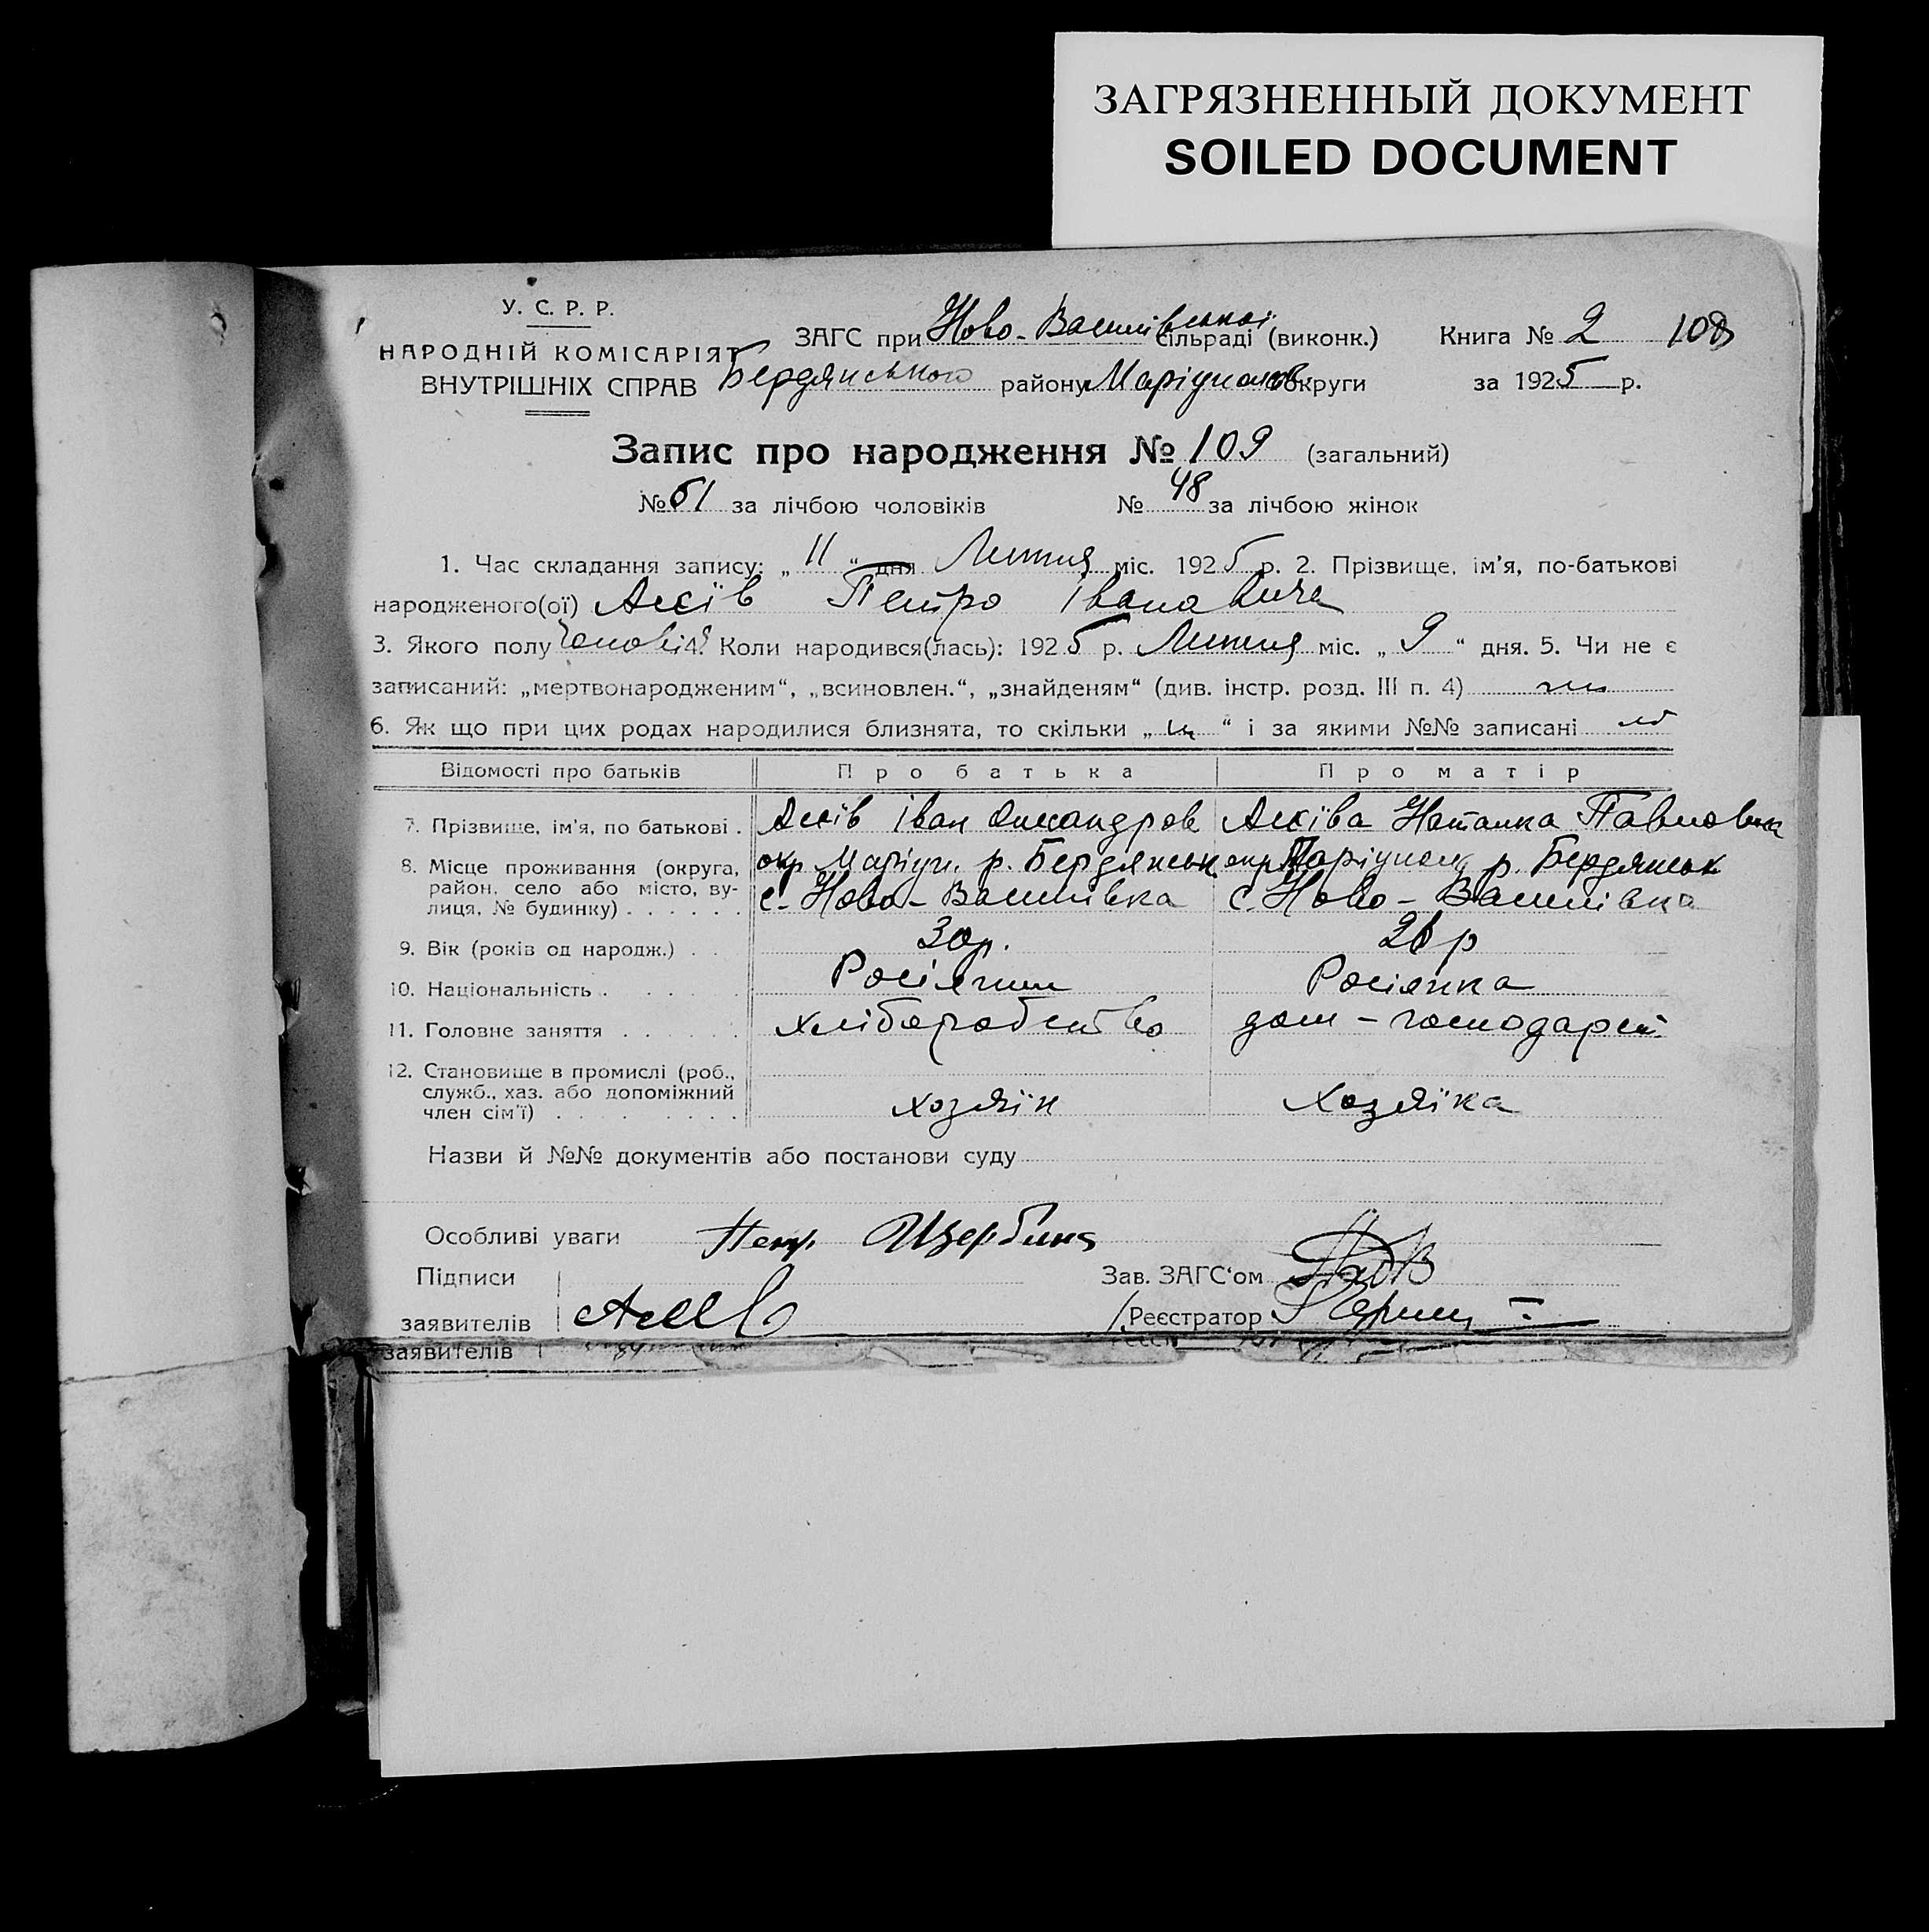 ЗАГРЯЗНЕННЫЙ ДОКУМЕНТ
SOILED DOCUMENT
У. С. Р. Р.
НАРОДНІЙ КОМІСАРІЯТ
ВНУТРІШНІХ СПРАВ
ЗАГС при Ново-Василівської сільраді (виконк.) Книга № 2 108
Бердянського району Маріупольс округи за 1925 р.
Запис про народження № 109 (загальний)
№ 61 за лічбою чоловіків № 48 за лічбою жінок
1. Час складання запису: „ 11 “ дня Лютня міс. 1925 р. 2. Прізвище, ім'я, по-батькові
народженого(ої) Петро Івановича
3. Якого полу 4. Коли народився(лась): 1925 р. Лютня міс. „ 9 “ дня. 5. Чи не є
записаний: „мертвонародженим“, „всиновлен.“, „знайденям“ (див. інстр. розд. III п. 4) ні
6. Як що при цих родах народилися близнята, то скільки „ “ і за якими №№ записані
Відомості про батьків Про батька Про матір
7. Прізвище, ім'я, по батькові . Іван Олександров Наталка Павловна
8. Місце проживання (округа, район, село або місто, вулиця, № будинку) . . . . . .
окр Маріуп. р. Бердянськ окр Маріуполь р. Бердянськ
с. Ново-Василівка с. Ново-Василівка
9. Вік (років од народж.) . . 30 р. р
10. Національність . . . . . Росіянин Росіянка
11. Головне заняття . . . . . . хліборобство дом-господарст
12. Становище в промислі (роб., служб., хаз. або допоміжний член сім'ї) . . . . . . . . хозяїн Хозяїка
Назви й №№ документів або постанови суду
Особливі уваги Петр Щербина
Підписи
заявителів
Зав. ЗАГС'ом
Реєстратор
заявителів